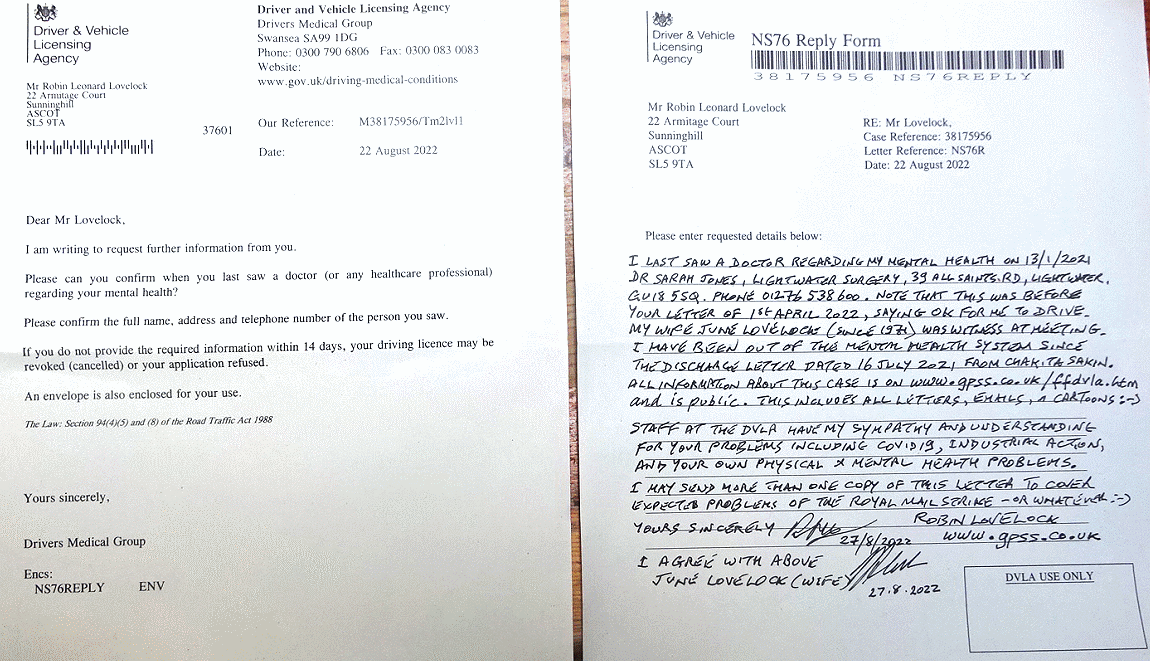 Driver & Vehicle
Licensing
Agency
Driver and Vehicle Licensing Agency
Drivers Medical Group
Swansea SA99 1DG
Phone: 0300 790 6806 Fax: 0300 083 0083
Website:
www.gov.uk/driving-medical-conditions
Mr Robin Leonard Lovelock
22 Armitage Court
Sunninghill
ASCOT
SL5 9TA
37601
Our Reference: M38175956/Tm2lvl1
Date: 22 August 2022
Dear Mr Lovelock,
I am writing to request further information from you.
Please can you confirm when you last saw a doctor (or any healthcare professional)
regarding your mental health?
Please confirm the full name, address and telephone number of the person you saw.
If you do not provide the required information within 14 days, your driving licence may be
revoked (cancelled) or your application refused.
An envelope is also enclosed for your use.
The Law: Section 94(4)(5) and (8) of the Road Traffic Act 1988
Yours sincerely,
Drivers Medical Group
Encs:
NS76REPLY ENV
Driver & Vehicle
Licensing
Agency
NS76 Reply Form
38175956 NS76REPLY
Mr Robin Leonard Lovelock
22 Armitage Court
Sunninghill
ASCOT
SL5 9TA
RE: Mr Lovelock,
Case Reference: 38175956
Letter Reference: NS76R
Date: 22 August 2022
Please enter requested details below:
I LAST SAW A DOCTOR REGARDING MY MENTAL HEALTH ON 13/1/2021
DR SARAH JONES, LIGHTWATER SURGERY, 39 ALL SAINTS. RD, LIGHTWATER.
GU18 5SQ. PHONE 01276 538600. NOTE THAT THIS WAS BEFORE
YOUR LETTER OF 1ST APRIL 2022, SAYING OK FOR ME TO DRIVE.
MY WIFE JUNE LOVELOCK (SINCE 1971) WAS WITNESS AT MEETING.
I HAVE BEEN OUT OF THE MENTAL HEALTH SYSTEM SINCE
THE DISCHARGE LETTER DATED 16 JULY 2021 FROM CHAK.TA SAKIN.
ALL INFORMATION ABOUT THIS CASE IS ON www.gpss.co.uk/ffdvla.htm
and is public. THIS INCLUDES ALL LETTERS, EMAILS, & CARTOONS :-)
STAFF AT THE DVLA HAVE MY SYMPATHY AND UNDERSTANDING
FOR YOUR PROBLEMS INCLUDING COVID19, INDUSTRIAL ACTION,
AND YOUR OWN PHYSICAL & MENTAL HEALTH PROBLEMS.
I MAY SEND MORE THAN ONE COPY OF THIS LETTER TO COVER
EXPECTED PROBLEMS OF THE ROYAL MAIL STRIKE - OR WHATEVER :-)
YOURS SINCERELY
ROBIN LOVELOCK
27/8/2022 www.gpss.co.uk
I AGREE WITH ABOVE
JUNE LOVELOCK (WIFE)
27.8.2022
DVLA USE ONLY